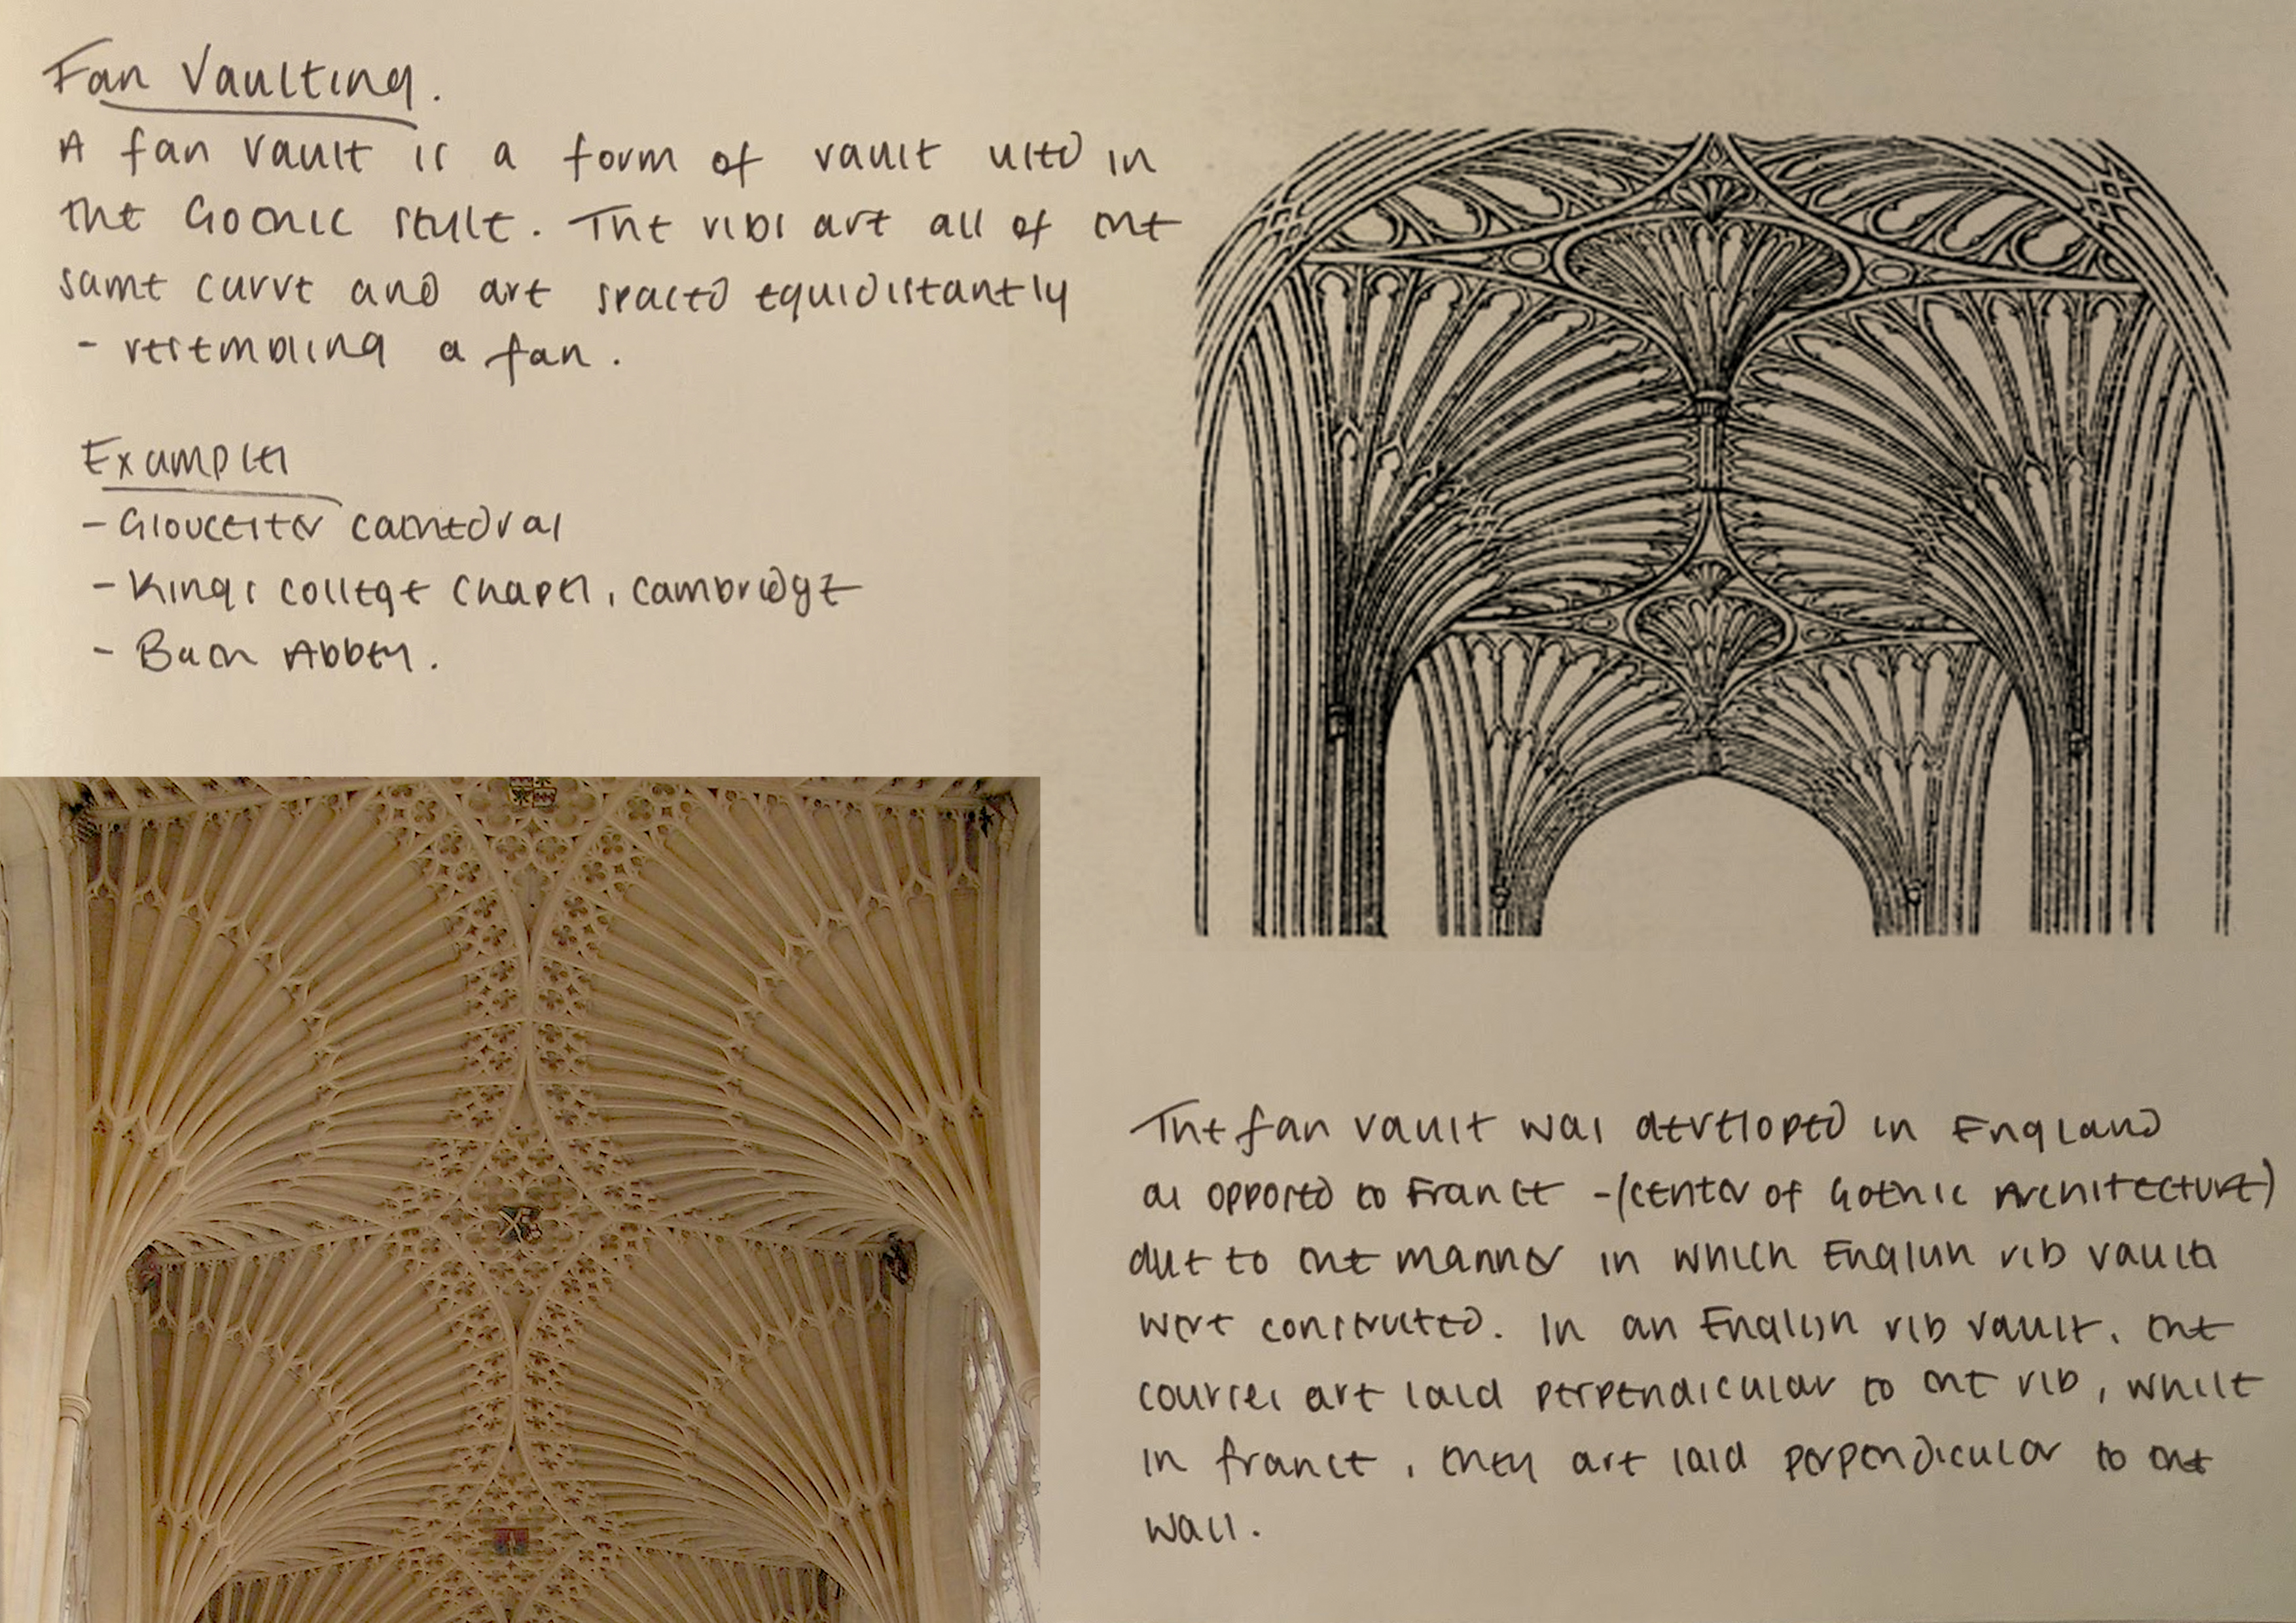 Fan Vaulting.
A fan vault is a form of vault used in
the Gothic style. The ribs are all of the
same curve and are spaced equidistantly
- resembling a fan.
Examples
- Gloucester cathedral
- Kings college Chapel, Cambridge
- Bath Abbey.
The fan vault was developed in England
as opposed to France - (center of Gothic Architecture)
due to the manner in which English rib vaults
were constructed. In an English rib vault, the
courses are laid perpendicular to the rib, while
in france, they are laid perpendicular to the
wall.